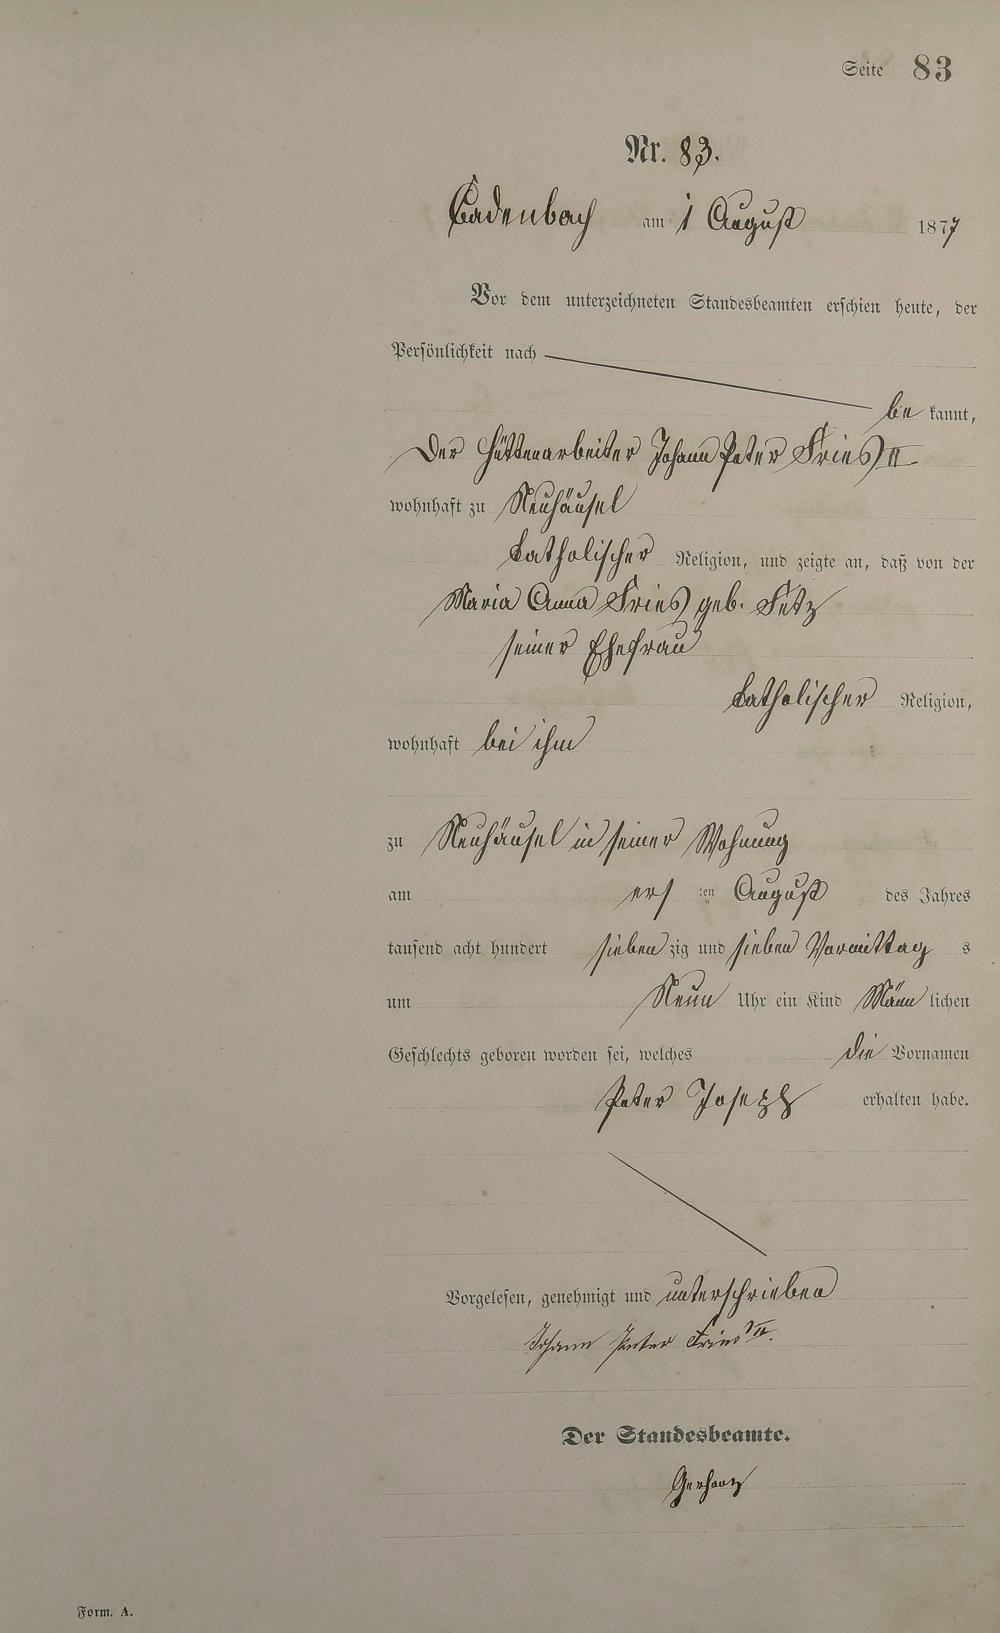 Seite 83
Nr. 83.
Cadenbach am 1 August 1877
Vor dem unterzeichneten Standesbeamten erschien heute, der
Persönlichkeit nach
be kannt,
Der Hüttenarbeiter Johann Peter Fries II
wohnhaft zu Neuhäusel
katholischer Religion, und zeigte an, daß von der
Maria Anna Fries geb. Fetz
seiner Ehefrau
katholischer Religion,
wohnhaft bei ihm
zu Neuhäusel in seiner Wohnung
am ers ten August des Jahres
tausend acht hundert sieben zig und sieben Vormittag s
um Neun Uhr ein Kind Männ lichen
Geschlechts geboren worden sei, welches die Vornamen
Peter Joseph erhalten habe.
Vorgelesen, genehmigt und unterschrieben
Johann Peter Fries II.
Der Standesbeamte.
Gerharz
Form. A.